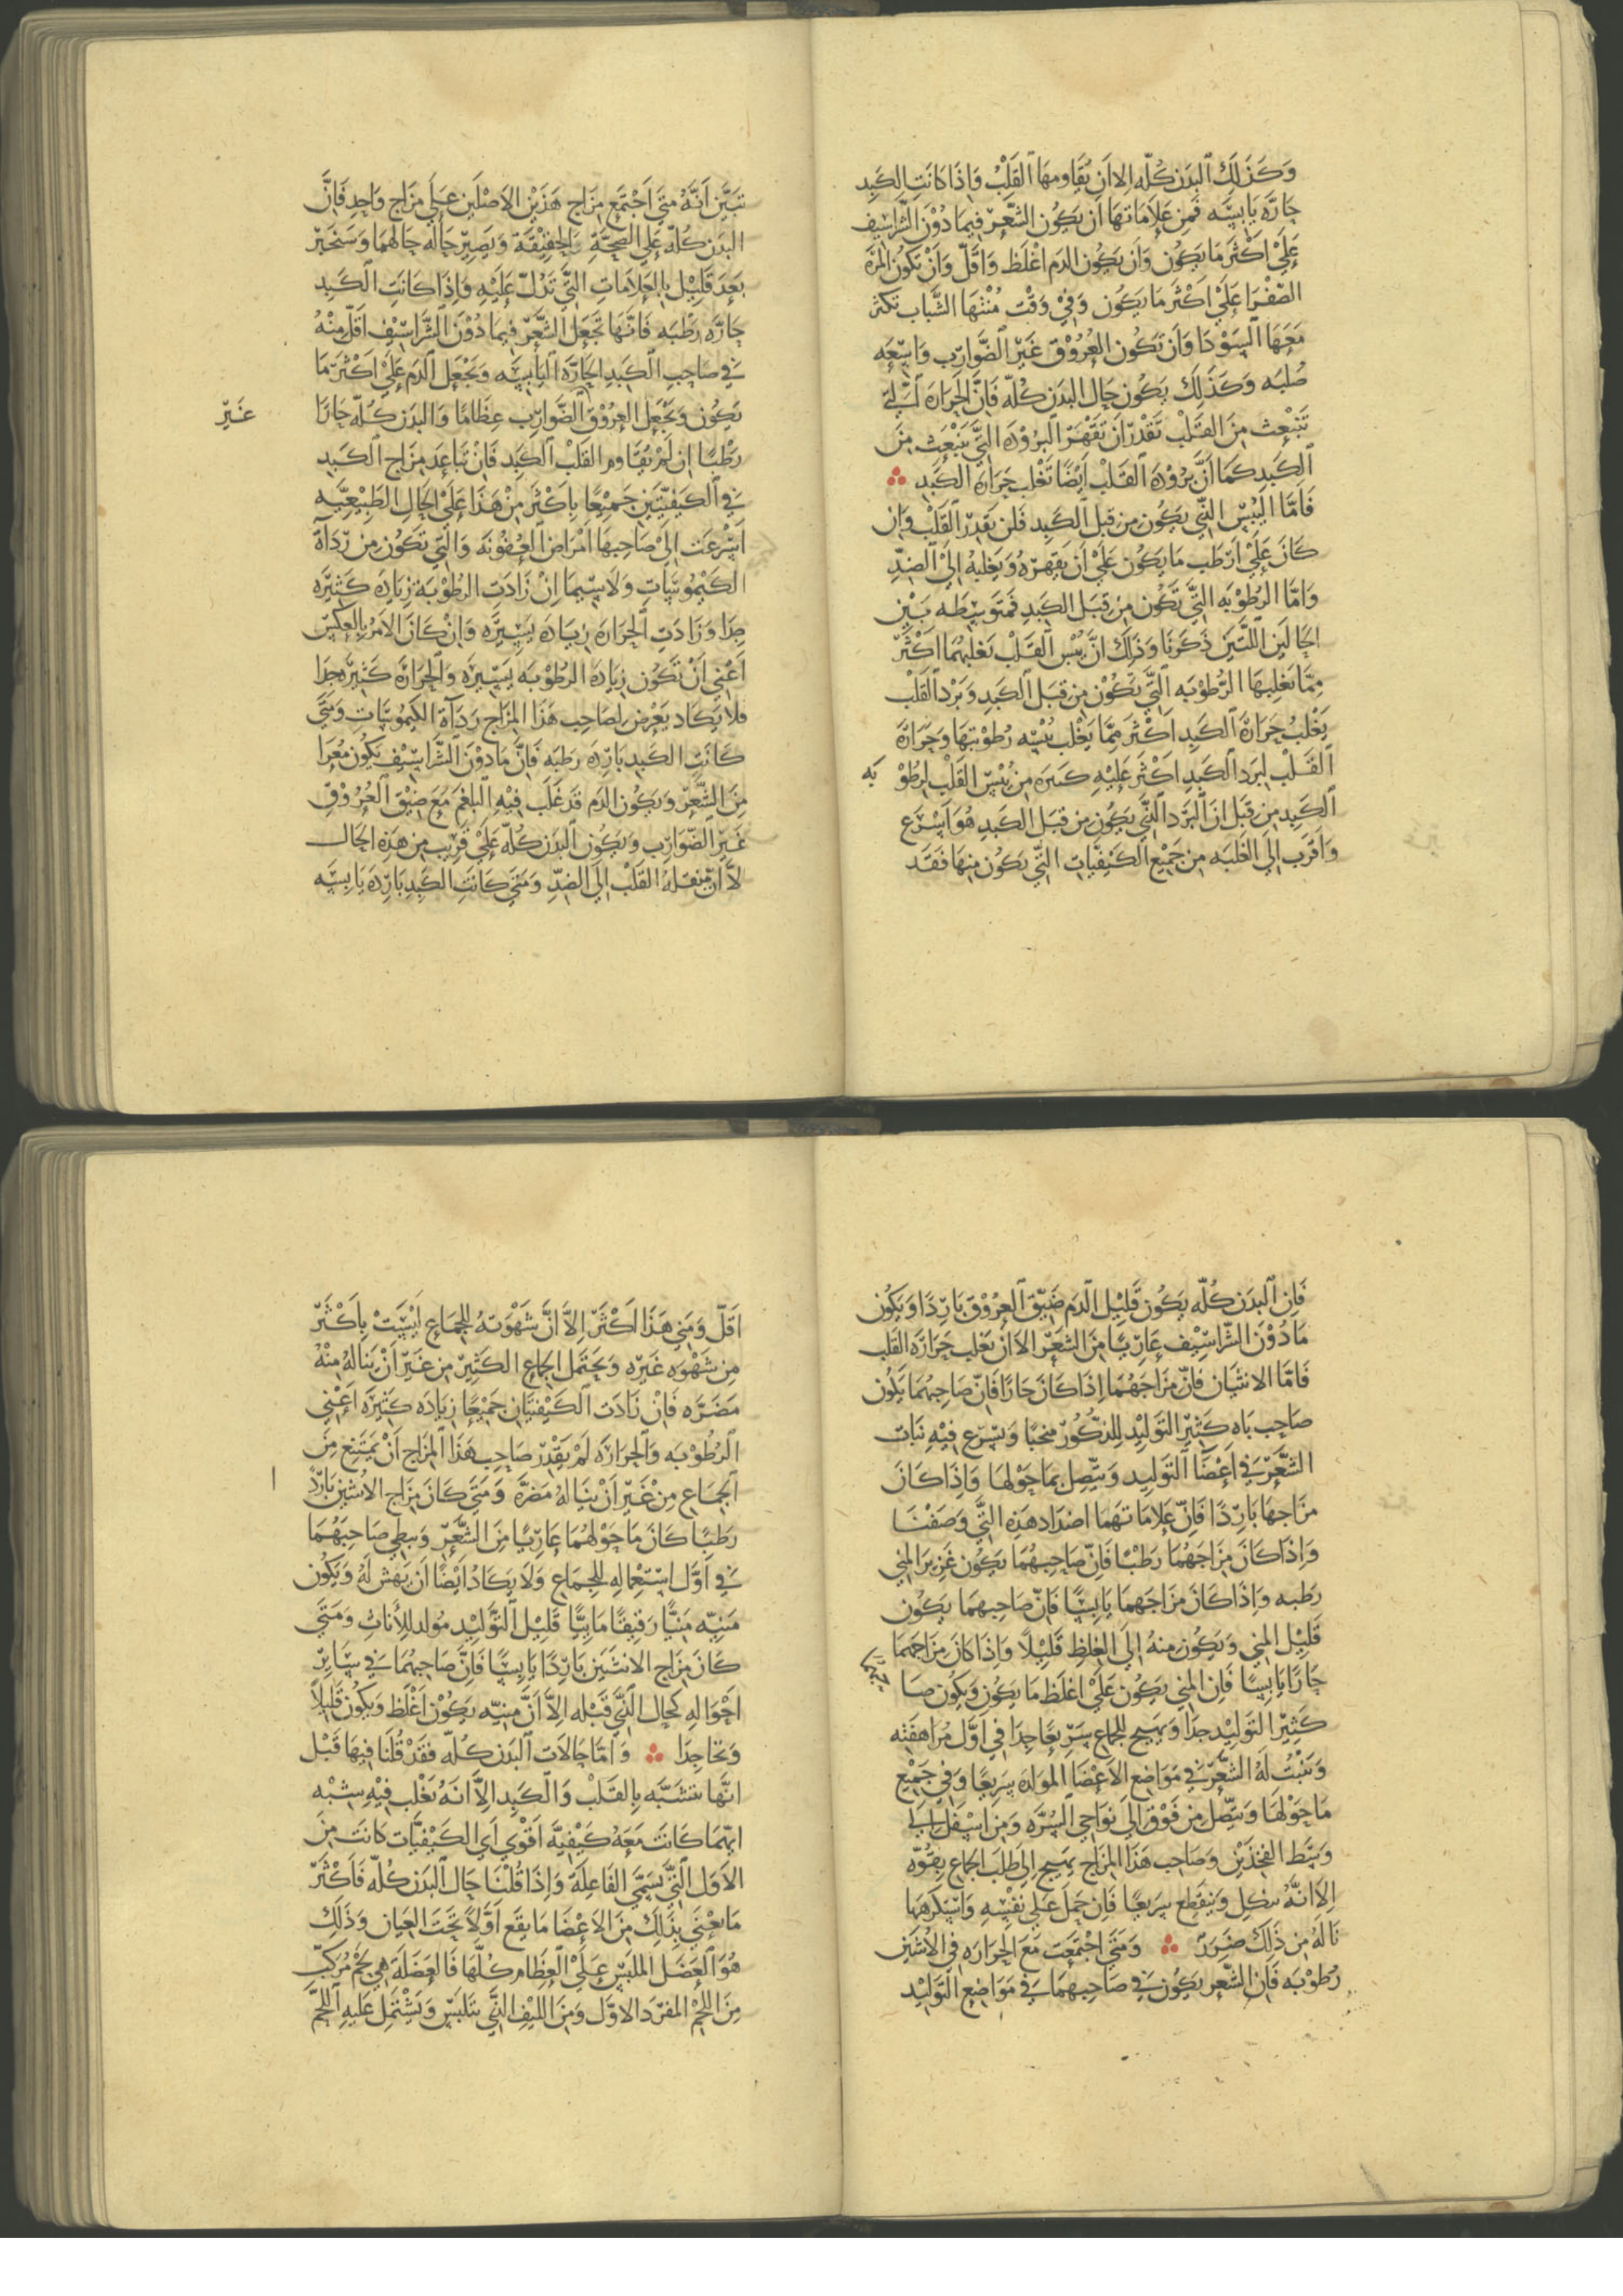 وَكَذَلِكَ البَدَن كُلّه إلا اَن يُقَاوِمهَا القَلْبُ وَاِذَا كَانَتِ الكَبِد
حَارَّه يَابِسَه فَمِن عَلامَاتهَا اَن يَكُون الشَّعْر فِيمَا دُوْنَ الشَّرَاسِيف
عَلَيْ اكْثَر مَا يَكُون وَاَن يَكُون الدَم اغْلَظ وَاقَلّ وَاَنْ تَكُون المرَّة
الصَّفْرَا عَلَيْ اكْثَر مَا يَكُون وَفِيْ وَقْت مُنْتهَا الشَّبَاب تكثر
مَعَهَا السَوْدَا وَاَن تَكُون العُرُوْق غَيْر الضَّوَارِب وَاسِعَه
صُلبَه وَكَذَلِكَ يَكُون حَال البَدَن كُلّه فَانَّ الحَرَارَة الَّتِي
تَنْبَعِث مِنَ القَلْب تَقْدِر اَن تَقْهَر البُرُوْدَه الَّتِي تَنْبَعِث مِنَ
الكَبِد كَمَا اَنَّ بُرُوْدَة القَلْب اَيْضًا تَغْلب حَرَارَة الكَبِد
فَامَّا اليُبْس الَّذِي يَكُون مِن قبَل الكَبِد فَلَن يَقْدِر القَلْب وَاِن
كَانَ عَلَيْ اَرْطَب مَا يَكُون عَلَيْ اَن يَقْهَرهُ وَيَغْلبهُ اِلَيْ الضِّدِ
وَامَّا الرُطُوْبَه الَّتِي تَكُون مِن قِبَل الكَبِد فَمتَوَسِطَه بَيْن
الحَالَين اللَّتَيْن ذَكَرنَا وَذَلِكَ انَّ يُبْس القَلْب يَغلبهُمَا اكْثَر
مِمَّا يَغلِبهَا الرُّطُوْبَه الَّتِي تَكُوْن مِن قبَل الكَبِد وَبَرْد القَلْب
يَغْلبُ حَرَارَة الكَبِد اكْثَر مِمَّا يَغْلب يُبْسه رُطُوْبتهَا وَحَرَارَة
القَلْب لبَرد الكَبِد اكْثَر عَلَيْهِ كسره مِن يُبْس القَلْب لِرطُوْ به
الكَبِد مِن قبَل انَّ البَرْد الَّذِي يَكُون مِن قبَل الكَبِد هُوَ اَسْرَع
وَاَقْرَب اِلَى الغَلبَه مِن جَمِيْع الكَيْفِيَّات الَّتِي يَكُون مِنهَا فَقَد
تبَيَّن اَنَّهُ مَتَي اَجْتمَع مِزَاج هَذَيْن الاَصْلَين عَلَي مِزَاج وَاحِد فَانَّ
البَدَن كُلّه عَلَي الصِحَّةِ بِالحَقِيْقَة وَيَصِير حَاله حَالهمَا وَسَنُخْبِر
بَعِدَ قَلِيْل بِالعَلامَاتِ الَّتِي تَدُلّ عَلَيْهِ وَاِذَا كَانَتِ الكَبِد
حَارَّه رَطْبَه فَانَّهَا تَجْعَل الشَّعْر فِيمَا دُوْنَ الشَّرَاسِيْف اقَلّ مِنْهُ
فِي صَاحِب الكَبِد الحَارَّه اليَابِسَه وَتَجْعَل الدَم عَلَيْ اكْثَر مَا
يَكُون وَتَجْعَل العُرُوْق الضَّوَارِب عِظَامًا وَالبَدَن كُلّه حَارًا
غَيْر
رَطْبًا اِن لَمْ يقَاوم القَلْب الكَبِد فَانْ تَبَاعَد مِزَاج الكَبِد
فِي الكَيْفِيَّتَيْن جَمِيْعًا بِاكْثَر مِنْ هَذَا عَلَيْ الحَالِ الطَبِيْعِيَّه
اَسْرَعَت اِلَيْ صَاحِبهَا امْرَاض العُفُوْنَه وَالَّتِي تَكُون مِن رَدَاةْ
الكَيْمُوسَاتِ وَلاَ سِيّمَا اِنْ زَادَت الرُطُوْبَة زِيَادَه كَثِيْرَه
جِدَا وَزَادَتِ الحَرَارَة زِيَادَه يَسِيْرَه وَاِنْ كَانَ الاَمْر بِالعَكْس
اَعْني اَنْ تَكُون زِيَادَة الرُطُوْبَه يَسِيْرَه وَالحَرَارَة كَثِيْرَه جدا
فَلاَ يَكَاد يَعْرِض لِصَاحِب هَذَا المِزَاج رَدَآة الكَيموسَاتِ وَمَتَي
كَانَتِ الكَبِد بَارِدَه رَطبَه فَانَّ مَا دُوْنَ الشَّرَاسِيْف يَكُون مُعَرَا
مِنَ الشَّعْر وَيَكُون الدَم قَد غَلَب فِيْهِ البَلغَم مَعَ ضِيْق العُرُوْق
غَيْر الضَّوَارِب وَيَكُون البَدَن كُلّه عَلَيْ قَرِيْب مِن هَذِه الحَال
لاَّ ان ينقله القَلْب اِلَي الضِدِّ وَمَتَي كَانَتِ الكَبِد بَارِدَه يَابِسَه
فَاِن البَدَن كُلّه يَكُون قَلِيْل الدَم ضَيِّق العُرُوْق بَارِدًا وَيَكُون
مَا دُوْنَ الشَّرَاسِيْف عَارِيًا مِنَ الشَعْر الاَ اَنْ يَغلب حَرَارَة القَلب
فَامَّا الانثيَان فَانَّ مزَاجَهُمَا اِذَا كَانَ حَارًا فَاِنّ صَاحِبهُمَا يَكُون
صَاحِب بَاهٍ كَثِيْر التَوَلِيْد لِلذُّكُوْر منجبًا وَيسْرَع فِيْهِ نَبَات
الشَّعْر فِي اعْضَا التَوَلِيد وَيَتّصِل بِمَا حَوْلهَا وَاِذَا كَانَ
مزَاجهَا بَارِدًا فَاِنَّ عَلامَاتهمَا اضدَاد هَذِه الَّتِي وَصَفْنَا
وَاِذَا كَانَ مِزَاجَهُمَا رَطْبًا فَاِنّ صَاحِبهُمَا يَكُون غَزِيْر المَنِي
رَطبه وَاِذَا كَانَ مزَاجهمَا يَابِسًا فَانّ صَاحِبهمَا يَكُون
قَلِيْل المَنِي وَيَكُون مِنهُ اِلَي الغِلَظِ قَلِيْلاً وَاِذَا كَانَ مِزَاجهمَا
حَارًا يَابِسًا فَاِن المَنِي يَكُون عَلَيْ اغلَظ مَا يَكُون وَيَكُون صَا حبهما
كَثِيْر التَوَلِيْد جِدَا وَيَهيج لِلجمَاع سَرِيْعًا جِدَا فِي اوَّل مُرَاهقَته
وَيَنْبُتُ لَهُ الشَّعْر فِي مَوَاضِع الاَعْضَا المولدَة سَرِيعًا وَفِي جَمِيْع
مَا حَوْلهَا وَيَتّصِل مِن فَوْق اِلَيَ نوَاحي السُرَّه وَمِن اسْفَل اِلَي
وَسَط الفَخِذَيْن وَصَاحِب هَذَا المِزَاج يَهيج اِلَي طَلَب الجمَاع بِقُوّه
اِلاَ انَّهُ ينكل وَيَنْقَطِع سَرِيعًا فَاِن حَمَل عَلَي نَفْسِهِ وَاسْتكرَهَهَا
نَالهُ مِن ذَلِكَ ضَرَر وَمَتَي اجْتمَعَت مَعَ الحَرَارَه فِي الاُنثيَين
رُطوْبَه فَاِنَّ الشَّعْر يَكُون فِي صَاحِبهمَا فِي مَوَاضِع التَّوَلِيْد
اقَلّ وَمَنِي هَذَا اكْثَر اِلاَّ انَّ شَهْوَتهُ لِلجمَاع لَيْسَتْ بِاَكْثَر
مِن شَهْوَه غَيْره وَيَحتَمل الجمَاع الكَثِيْر مِن غَيْر اَنْ يَنَالهُ مِنْهُ
مَضَرَّه فَاِنْ زَادَت الكَيْفِيتَان جَمِيْعًا زِيَادَه كَثِيْرَه اَعْني
الرُطُوْبَه وَالحَرَارَه لَمْ يَقْدِر صَاحِب هَذَا المزَاج اَنْ يَمْتَنِع مِنَ
الجمَاع مِنْ غَيْر اَنْ يَنَالهُ مَضَرَّه وَمَتَي كَانَ مِزَاج الانثيَيْن بَارِدً ا
رَطبًا كَانَ مَا حَوْلهُمَا عَارِيًا مِنَ الشَّعْر وَيبطي صَاحِبَهُمَا
فِي اَوَّل اسْتِعْمَالهِ لِلجمَاع وَلاَ يَكَادُ ايْضًا اَن يَهَش لَهُ وَيَكُون
مَنِيّه مَنِيًّا رَقِيْقًا مَائِيًّا قَلِيْل التَّوَلِيْد مُولد لِلاُنَاثِ وَمَتَي
كَانَ مِزَاج الانثيَيْن بَارِدًا يَابِسًا فَاِنَّ صَاحِبهُمَا فِي سَايِر
احْوَالهِ كَحَال الَّذِي قَبْله اِلاَّ اَنَّ مَنِيّه يَكُوْن اَغْلَظ وَيَكُوْن قَلِيْلاً
وَتحا جِدَا وَامَّا حَالاَت البَدَن كُلّه فَقَدْ قُلنَا فِيهَا قَبْل
انَّهَا تتشَبَّه بِالقَلْب وَالكَبِد اِلاَّ انَهُ يَغْلب فِيْهِ شبْه
ايّهمَا كَانَتْ مَعَهُ كَيْفِيَّه اَقْوَي اَي الكَيْفِيَّات كَانَت مِنَ
الاوَل الَّتِي يُسَمَّي الفَاعِلَة وَاِذَا قُلْنَا حَال البَدَن كُلّه فَاَكْثَر
مَا نعْنِي بِذَلِكَ مِنَ الاَعْضَا مَا يقَع اوَّلاً تَحتَ العيَان وَذَلِكَ
هُوَ العَضَل الملَبَّس عَلَي العِظَام كُلّهَا فَالعَضَلَة هِيَ لَحْم مُرَكَّب
مِنَ اللحْم المفرَد الاوَّل وَمِنَ الليْف الَّذِي يَتَلَبّس وَيَشْتمِل عَليه اللحْم